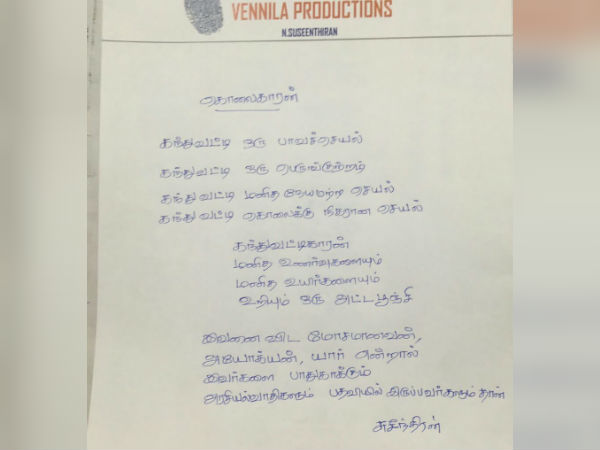 VENNILA PRODUCTIONS
N.SUSEENTHIRAN
கொலைகாரன்
கந்துவட்டி ஒரு பாவச்செயல்
கந்துவட்டி ஒரு பெருங்குற்றம்
கந்துவட்டி மனித நேயமற்ற செயல்
கந்துவட்டி கொலைக்கு நிகரான செயல்
கந்துவட்டிகாரன்
மனித உணர்வுகளையும்
மனித உயிர்களையும்
உறியும் ஒரு அட்டபூச்சி
இவனை விட மோசமானவன்,
அயோக்யன், யார் என்றால்
இவர்களை பாதுகாக்கும்
அரசியல்வாதிகளும் பதவியில் இருப்பவர்களும் தான்
சுசீந்திரன்